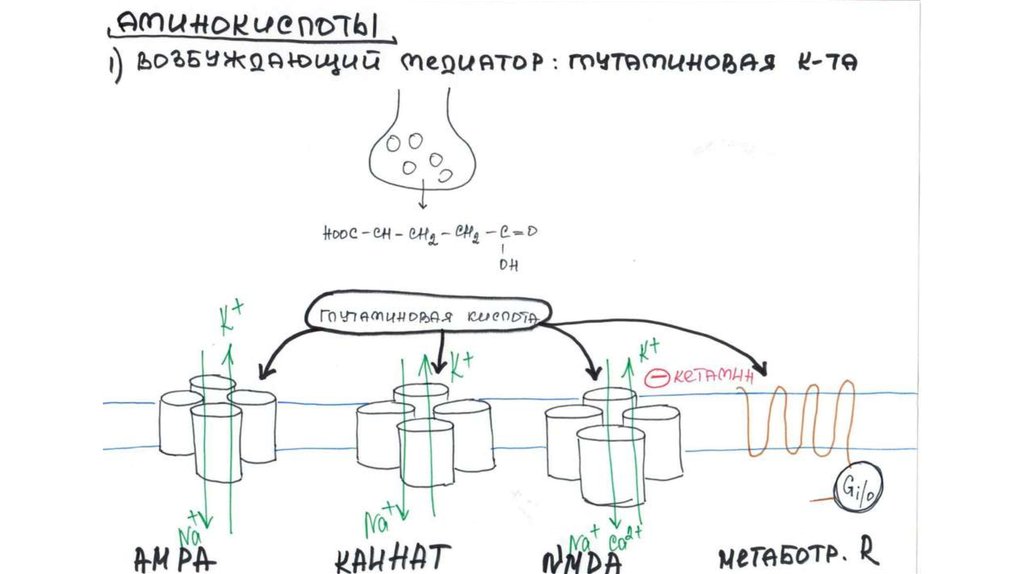 АМИНОКИСЛОТЫ
1) ВОЗБУЖДАЮЩИЙ МЕДИАТОР: ГЛУТАМИНОВАЯ К-ТА
HOOC–CH–CH2–CH2–C=O
OH
ГЛУТАМИНОВАЯ КИСЛОТА
K+
K+
K+
⊖ КЕТАМИН
Gi/o
Na+
Na+
Na+ Ca2+
AMPA
КАИНАТ
NMDA
МЕТАБОТР. R